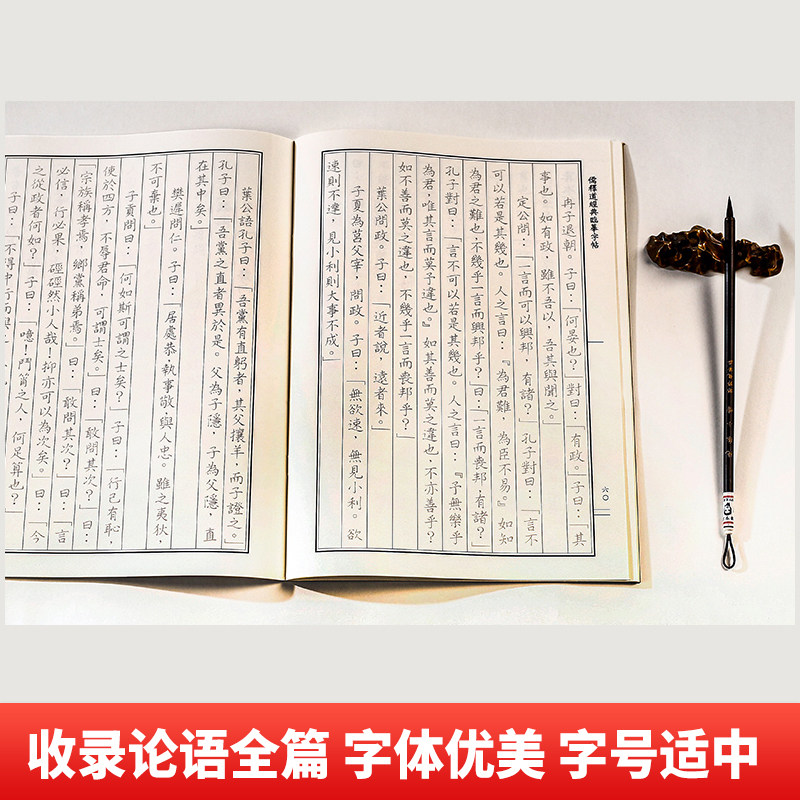 儒釋道經典臨摹字帖
冉子退朝。子曰：「何晏也？」對曰：「有政。」子曰：「其
事也。如有政，雖不吾以，吾其與聞之。」
定公問：「一言而可以興邦，有諸？」孔子對曰：「言不
可以若是其幾也。人之言曰：『為君難，為臣不易。』如知
為君之難也，不幾乎一言而興邦乎？」曰：「一言而喪邦，有諸？」
孔子對曰：「言不可以若是其幾也。人之言曰：『予無樂乎
為君，唯其言而莫予違也。』如其善而莫之違也，不亦善乎？
如不善而莫之違也，不幾乎一言而喪邦乎？」
葉公問政。子曰：「近者說，遠者來。」
子夏為莒父宰，問政。子曰：「無欲速，無見小利。欲
速則不達，見小利則大事不成。」
六〇
葉公語孔子曰：「吾黨有直躬者，其父攘羊，而子證之。」
孔子曰：「吾黨之直者異於是。父為子隱，子為父隱，直
在其中矣。」
樊遲問仁。子曰：「居處恭，執事敬，與人忠。雖之夷狄，
不可棄也。」
子貢問曰：「何如斯可謂之士矣？」子曰：「行己有恥，
使於四方，不辱君命，可謂士矣。」曰：「敢問其次？」曰：
「宗族稱孝焉，鄉黨稱弟焉。」曰：「敢問其次？」曰：「言
必信，行必果，硜硜然小人哉！抑亦可以為次矣。」曰：「今
之從政者何如？」子曰：「噫！鬥筲之人，何足算也？」
子曰：「不得中行而與
收录论语全篇 字体优美 字号适中